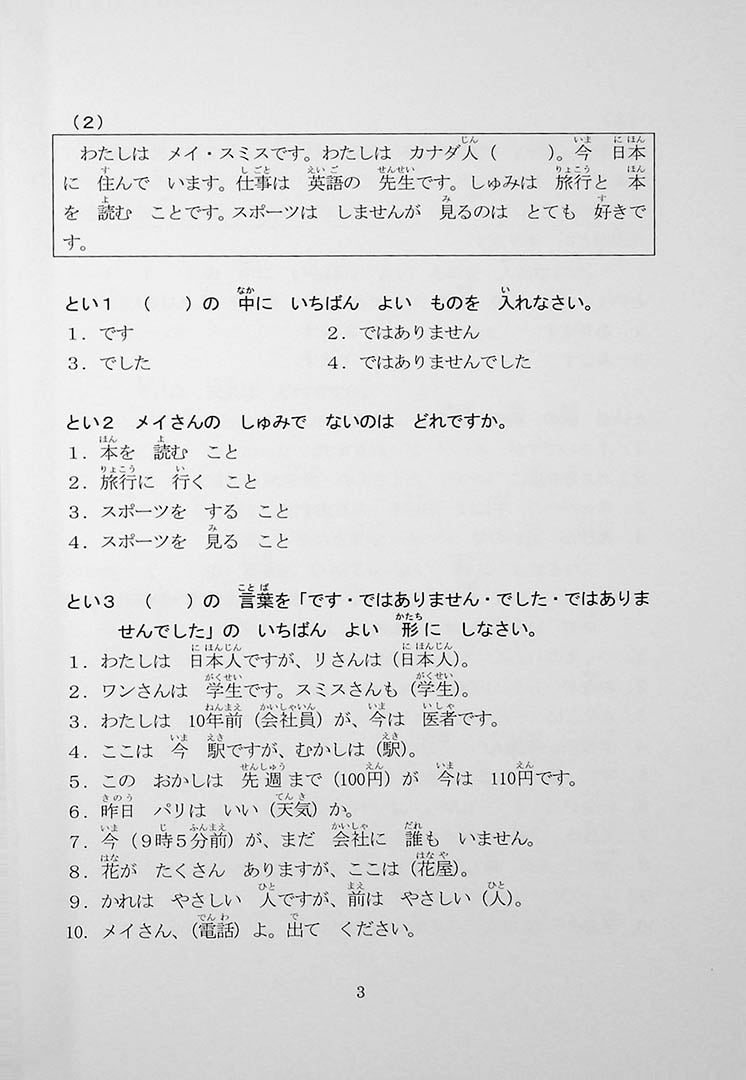 （2）
わたしは　メイ・スミスです。わたしは　カナダ人（　　　）。今　日本
に　住んで　います。仕事は　英語の　先生です。しゅみは　旅行と　本
を　読む　ことです。スポーツは　しませんが　見るのは　とても　好きで
す。
とい1　（　　）の　中に　いちばん　よい　ものを　入れなさい。
1．です　　　　　2．ではありません
3．でした　　　　4．ではありませんでした
とい2　メイさんの　しゅみで　ないのは　どれですか。
1．本を　読む　こと
2．旅行に　行く　こと
3．スポーツを　する　こと
4．スポーツを　見る　こと
とい3　（　　）の　言葉を「です・ではありません・でした・ではありま
せんでした」の　いちばん　よい　形に　しなさい。
1．わたしは　日本人ですが、リさんは（日本人）。
2．ワンさんは　学生です。スミスさんも（学生）。
3．わたしは　10年前（会社員）が、今は　医者です。
4．ここは　今　駅ですが、むかしは（駅）。
5．この　おかしは　先週まで（100円）が　今は　110円です。
6．昨日　パリは　いい（天気）か。
7．今（9時5分前）が、まだ　会社に　誰も　いません。
8．花が　たくさん　ありますが、ここは（花屋）。
9．かれは　やさしい　人ですが、前は　やさしい（人）。
10．メイさん、（電話）よ。出て　ください。
3